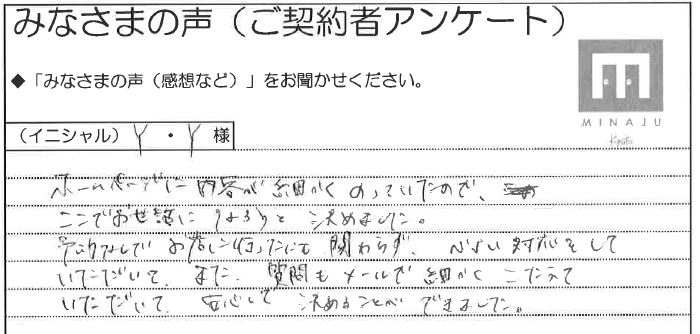 みなさまの声（ご契約者アンケート）
◆「みなさまの声（感想など）」をお聞かせください。
MINAJU
Kyoto
（イニシャル） Y ・ Y 様
ホームページに内容が細かくのっていたので、
ここでお世話になろうと決めました。
予約なしでお店に行ったにも関わらず、 対応をして
いただいて、また、質問もメールで細かくこたえて
いただいて、安心して決めることができました。